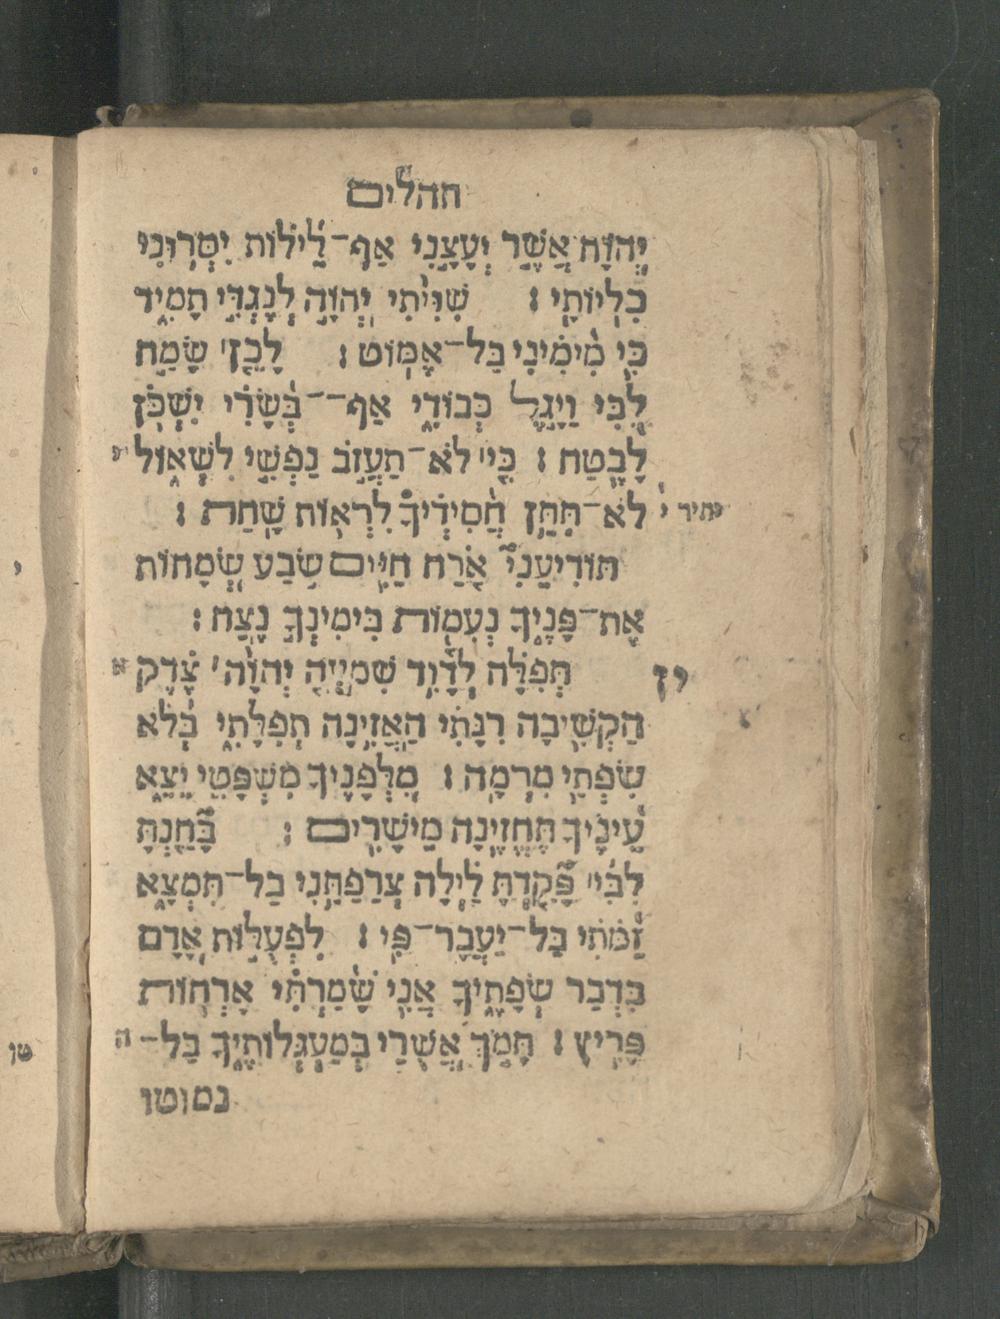 תהלים
יְהוָה אֲשֶׁר יְעָצָנִי אַף־לֵילוֹת יִסְּרוּנִי
כִלְיוֹתָי׃ שִׁוִּיתִי יְהוָה לְנֶגְדִּי תָמִיד
כִּי מִימִינִי בַּל־אֶמּוֹט׃ לָכֵן שָׂמַח
לִבִּי וַיָּגֶל כְּבוֹדִי אַף־־בְּשָׂרִי יִשְׁכֹּן
לָבֶטַח׃ כִּי לֹא־תַעֲזֹב נַפְשִׁי לִשְׁאוֹל
לֹא־תִתֵּן חֲסִידֶיךָ לִרְאוֹת שָׁחַת׃ יתיר י
תּוֹדִיעֵנִי אֹרַח חַיִּים שֹׂבַע שְׂמָחוֹת
אֶת־פָּנֶיךָ נְעִמוֹת בִּימִינְךָ נֶצַח׃
יז תְּפִלָּה לְדָוִד שִׁמְעָה יְהוָה צֶדֶק א
הַקְשִׁיבָה רִנָּתִי הַאֲזִינָה תְפִלָּתִי בְּלֹא
שִׂפְתֵי מִרְמָה׃ מִלְּפָנֶיךָ מִשְׁפָּטִי יֵצֵא
עֵינֶיךָ תֶּחֱזֶינָה מֵישָׁרִים׃ בָּחַנְתָּ
לִבִּי פָּקַדְתָּ לַּיְלָה צְרַפְתַּנִי בַל־תִּמְצָא
זַמֹּתִי בַּל־יַעֲבָר־פִּי׃ לִפְעֻלּוֹת אָדָם
בִּדְבַר שְׂפָתֶיךָ אֲנִי שָׁמַרְתִּי אָרְחוֹת
פָּרִיץ׃ תָּמֹךְ אֲשֻׁרַי בְּמַעְגְּלוֹתֶיךָ בַּל־ ה
נמוטו
י
טו